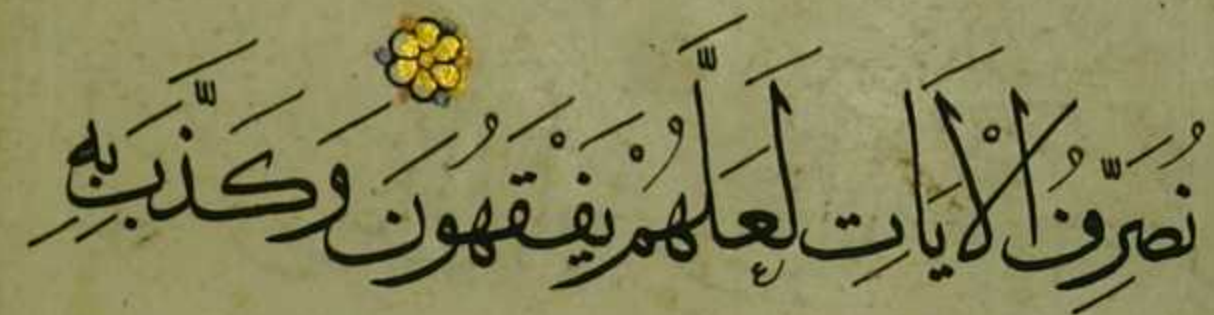 نُصَرِّفُ الْاٰيَاتِ لَعَلَّهُمْ يَفْقَهُونَ وَكَذَّبَ بِهِ